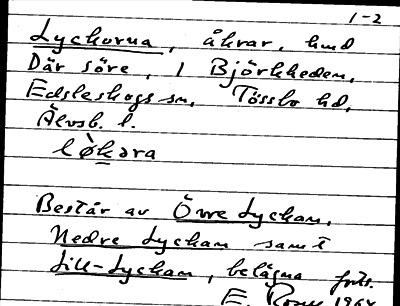 1-2
Lyckorna, åkrar, hmd
Där söre, i Björkheden,
Edsleskogs sn, Tössbo hd,
Älvsb. l.
Består av Övre Lyckan,
Nedre Lyckan samt
Lill-Lyckan, belägna forts.
E. 1964